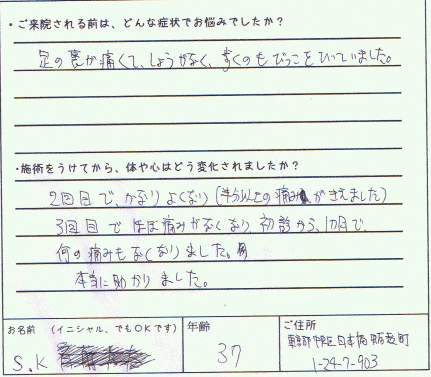 ・ご来院される前は、どんな症状でお悩みでしたか？
足の裏が痛くて、しょうがなく、歩くのもびっこをひいていました。
・施術をうけてから、体や心はどう変化されましたか？
2回目で、かなりよくなり（半分以上の痛みがきえました）
3回目でほぼ痛みがなくなり初診から、1カ月で、
何の痛みもなくなりました。
本当に助かりました。
お名前 （イニシャル、でもOKです）
年齢
ご住所
S.K
37
東京都中央区日本橋
1-24-7-903